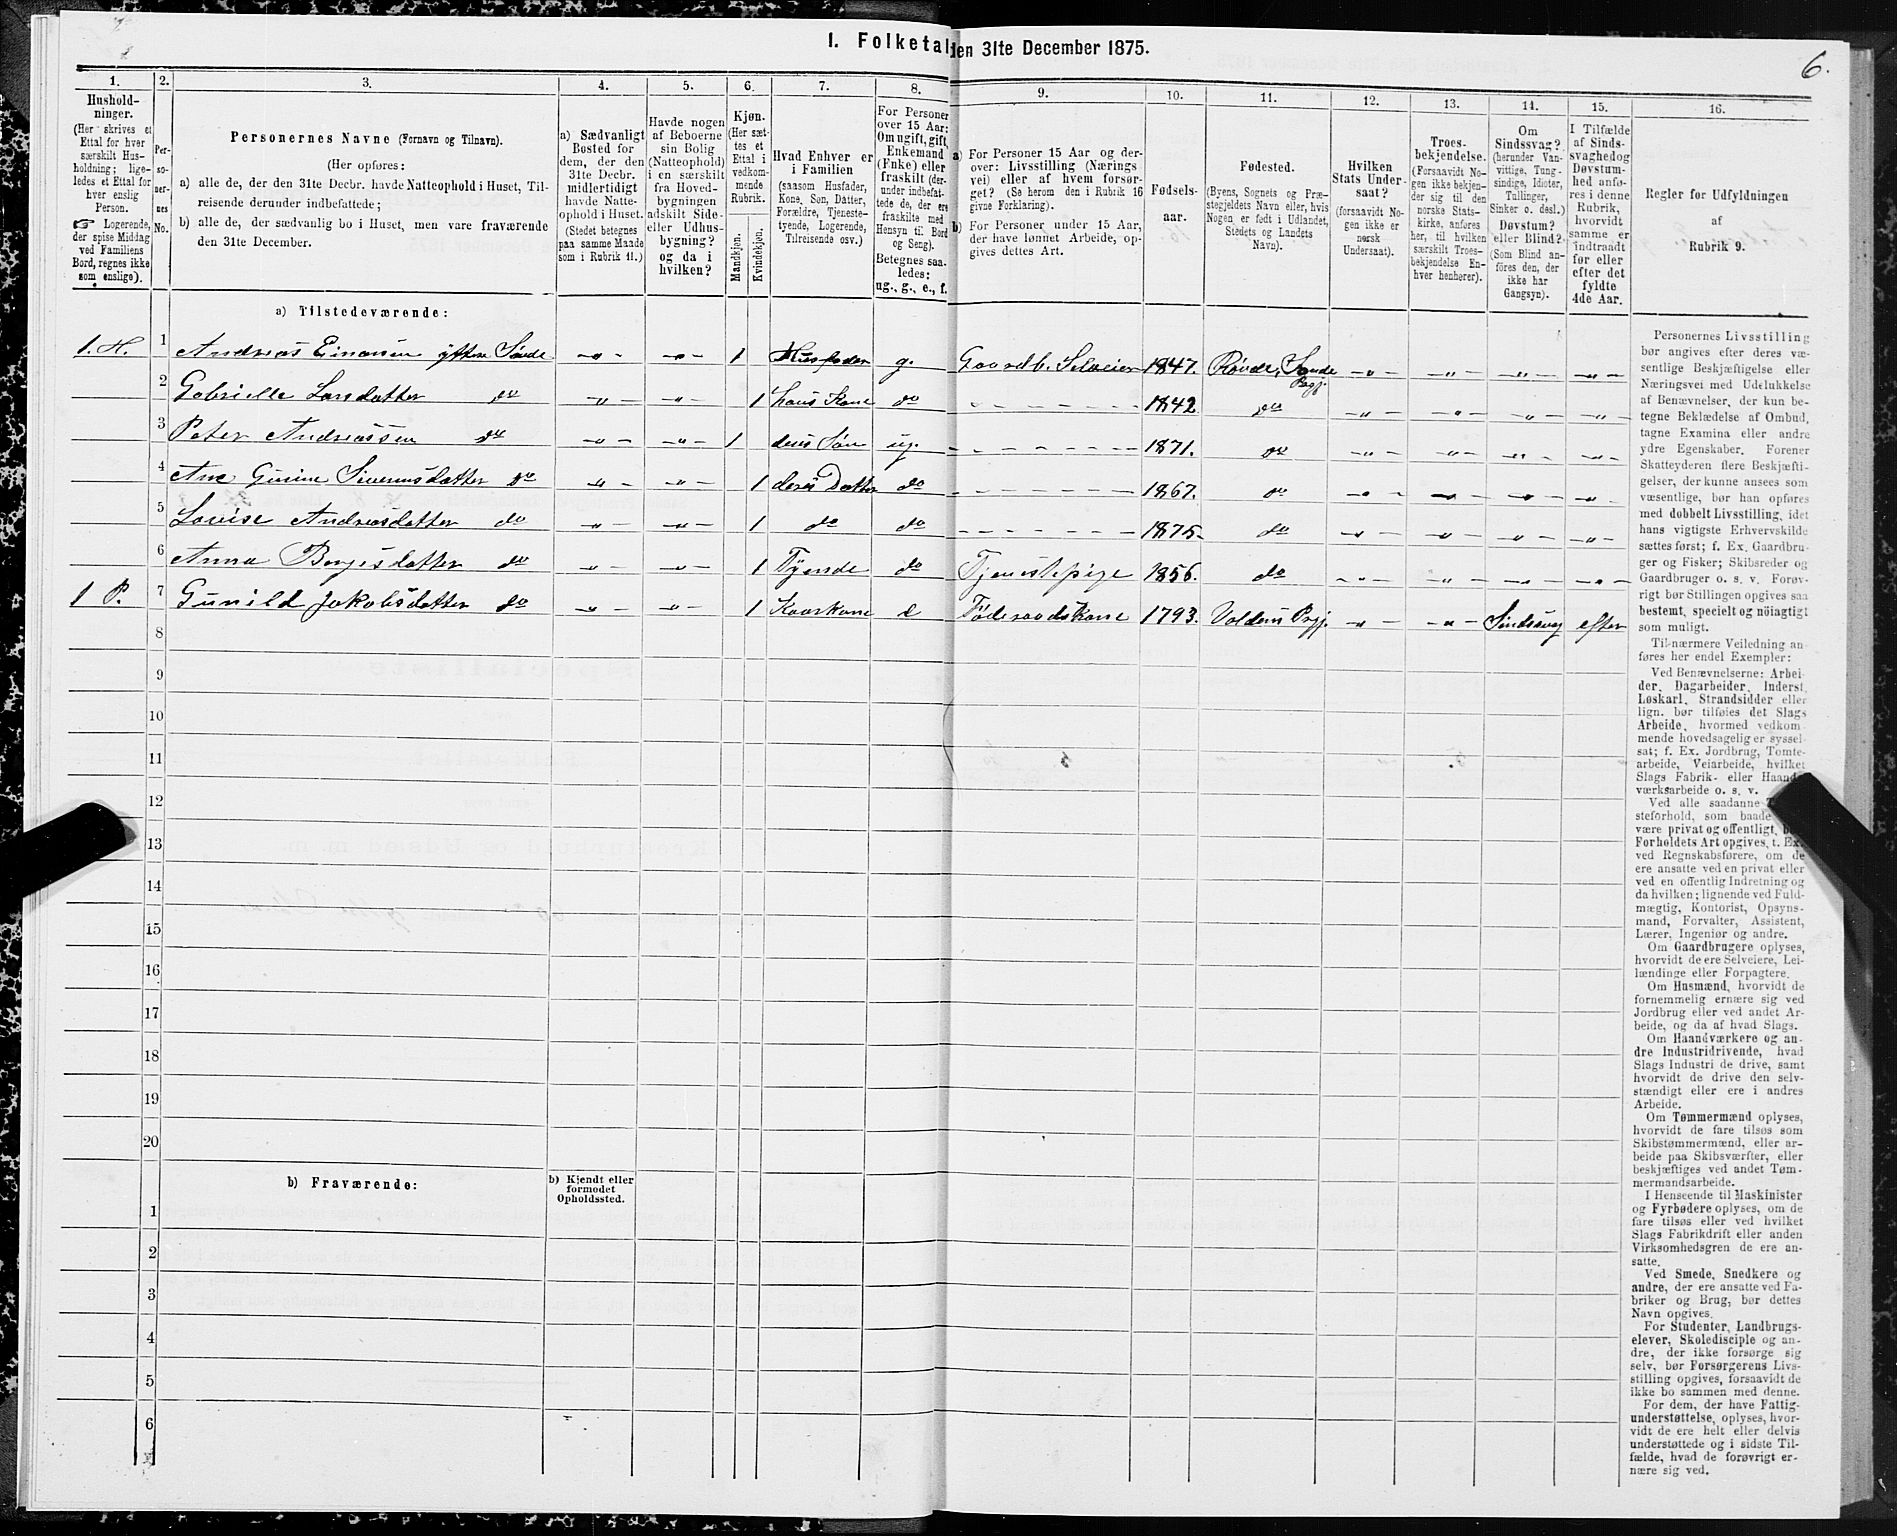 I. Folketal den 31te December 1875.
6.
1. 2. 3. 4. 5. 6. 7. 8. 9. 10. 11. 12. 13. 14. 15. 16.
Hushold-
ninger.
(Her skrives et
Ettal for hver
særskilt Hus-
holdning; lige-
ledes et Ettal for
hver enslig
Person.
☞ Logerende,
der spise Middag
ved Familiens
Bord, regnes ikke
som enslige).
Per-
so-
ner-
nes
No.
Personernes Navne (Fornavn og Tilnavn).
(Her opføres:
a) alle de, der den 31te Decbr. havde Natteophold i Huset, Til-
reisende derunder indbefattede;
b) alle de, der sædvanlig bo i Huset, men vare fraværende
den 31te December.
a) Sædvanligt
Bosted for
dem, der den
31te Decbr.
midlertidigt
havde Natte-
ophold i Huset.
(Stedet betegnes
paa samme Maade
som i Rubrik 11.)
Havde nogen
af Beboerne
sin Bolig
(Natteophold)
i en særskilt
fra Hoved-
bygningen
adskilt Side-
eller Udhus-
bygning?
og da i
hvilken?
Kjøn.
(Her sæt-
tes et
Ettal i
vedkom-
mende
Rubrik.
Mandkjøn.
Kvindekjøn.
Hvad Enhver er
i Familien
(saasom Husfader,
Kone, Søn, Datter,
Forældre, Tjeneste-
tyende, Logerende,
Tilreisende osv.)
For Personer
over 15 Aar:
Om ugift, gift,
Enkemand
(Enke) eller
fraskilt (der-
under indbefat-
tede de, der ere
fraskilte med
Hensyn til Bord
og Seng).
Betegnes saa-
ledes:
ug., g., e., f.
a) For Personer 15 Aar og der-
over: Livsstilling (Nærings-
vei) eller af hvem forsør-
get? (Se herom den i Rubrik 16
givne Forklaring).
b) For Personer under 15 Aar,
der have lønnet Arbeide, op-
gives dettes Art.
Fødsels-
aar.
Fødested.
(Byens, Sognets og Præ-
stegjeldets Navn eller, hvis
Nogen er født i Udlandet,
Stedets og Landets
Navn).
Hvilken
Stats Under-
saat?
(forsaavidt No-
gen ikke er
norsk
Undersaat).
Troes-
bekjendelse.
(Forsaavidt No-
gen ikke bekjen-
der sig til den
norske Stats-
kirke, anføres
her, til hvilken
særskilt Troes-
bekjendelse En-
hver henhører).
Om
Sindssvag?
(herunder Van-
vittige, Tung-
sindige, Idioter,
Tullinger,
Sinker o. desl.)
Døvstum?
eller Blind?
(Som Blind an-
føres den, der
ikke har
Gangsyn).
I Tilfælde
af Sinds-
svaghed og
Døvstum-
hed anfø-
res i denne
Rubrik,
hvorvidt
samme er
indtraadt
før eller
efter det
fyldte
4de Aar.
Regler for Udfyldningen
af
Rubrik 9.
a) Tilstedeværende:
1. H. 1 Andreas Einarsen yttre Sørde — " — — " — 1 Husfader g. Gaardb. Selveier 1847. Røvde, Sande Prgj. — " — — " — — " — — " —
2 Gabrielle Larsdatter do — " — — " — 1 hans Kone do 1842 do — " — — " — — " — — " —
3 Peter Andreassen do — " — — " — 1 deres Søn ug. 1871. do — " — — " — — " — — " —
4 Ane Gurine Siverinsdatter do — " — — " — 1 deres Datter do 1867. do — " — — " — — " — — " —
5 Lovise Andreasdatter do — " — — " — 1 do do 1875. do — " — — " — — " — — " —
6 Anna Borgesdatter do — " — — " — 1 Tyende do Tjenestepige 1856. do — " — — " — — " — — " —
1 P. 7 Gunild Jakobsdatter do — " — — " — 1 Kaarkone e Føderaadskone 1793. Voldens Prgj. — " — — " — Sindssvag efter
8
9
10
11
12
13
14
15
16
17
18
19
20
b) Fraværende:
b) Kjendt eller
formodet
Opholdssted.
1
2
3
4
5
6
Personernes Livsstilling
bør angives efter deres væ-
sentlige Beskjæftigelse eller
Næringsvei med Udelukkelse
af Benævnelser, der kun be-
tegne Beklædelse af Ombud,
tagne Examina eller andre
ydre Egenskaber. Forener
Skatteyderen flere Beskjæfti-
gelser, der kunne ansees som
væsentlige, bør han opføres
med dobbelt Livsstilling, idet
hans vigtigste Erhvervskilde
sættes først; f. Ex. Gaardbru-
ger og Fisker; Skibsreder og
Gaardbruger o. s. v. Forøv-
rigt bør Stillingen opgives saa
bestemt, specielt og nöiagtigt
som muligt.
Til nærmere Veiledning an-
føres her endel Exempler:
Ved Benævnelserne: Arbei-
der, Dagarbeider, Inderst,
Løskarl, Strandsidder eller
lign. bør tilføies det Slags
Arbeide, hvormed vedkom-
mende hovedsagelig er syssel-
sat; f. Ex. Jordbrug, Tomte-
arbeide, Veiarbeide, hvilket
Slags Fabrik- eller Haand-
værksarbeide o. s. v.
Ved alle saadanne
steforhold, som baade
være privat og offentligt, bør
Forholdets Art opgives, t. Ex.
ved Regnskabsførere, om de
ere ansatte ved en privat eller
ved en offentlig Indretning og
da hvilken; lignende ved Fuld-
mægtig, Kontorist, Opsyns-
mand, Forvalter, Assistent,
Lærer, Ingeniør og andre.
Om Gaardbrugere oplyses,
hvorvidt de ere Selveiere, Lei-
lændinge eller Forpagtere.
Om Husmænd, hvorvidt de
fornemmelig ernære sig ved
Jordbrug eller ved andet Ar-
beide, og da af hvad Slags.
Om Haandværkere og an-
dre Industridrivende, hvad
Slags Industri de drive, samt
hvorvidt de drive den selv-
stændigt eller ere i andres
Arbeide.
Om Tømmermænd oplyses,
hvorvidt de fare tilsøs som
Skibstømmermænd, eller ar-
beide paa Skibsværfter, eller
beskjæftiges ved andet Tøm-
mermandsarbeide.
I Henseende til Maskinister
og Fyrbødere oplyses, om de
fare tilsøs eller ved hvilket
Slags Fabrikdrift eller anden
Virksomhedsgren de ere an-
satte.
Ved Smede, Snedkere og
andre, der ere ansatte ved Fa-
briker og Brug, bør dettes
Navn opgives.
For Studenter, Landbrugs-
elever, Skoledisciple og an-
dre, der ikke forsørge sig
selv, bør Forsørgerens Livs-
stilling opgives, forsaavidt de
ikke bo sammen med denne.
For dem, der have Fattig-
understøttelse, oplyses, hvor-
vidt de ere helt eller delvis
understøttede og i sidste Til-
fælde, hvad de forøvrigt er-
nære sig ved.